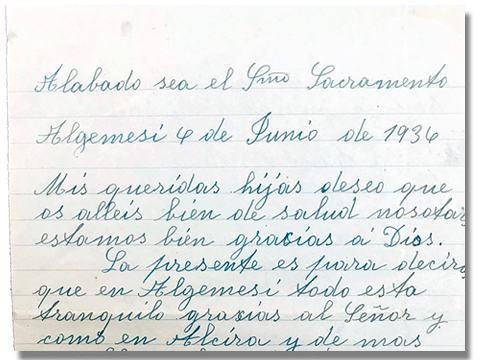 Alabado sea el Smo Sacramento
Algemesí 4 de Junio de 1936
Mis queridas hijas deseo que
os alleis bién de salud nosotas
estamos bién gracias á Dios.
La presente es para deciros
que en Algemesí todo esta
tranquilo gracias al Señor y
como en Alcira y de mas